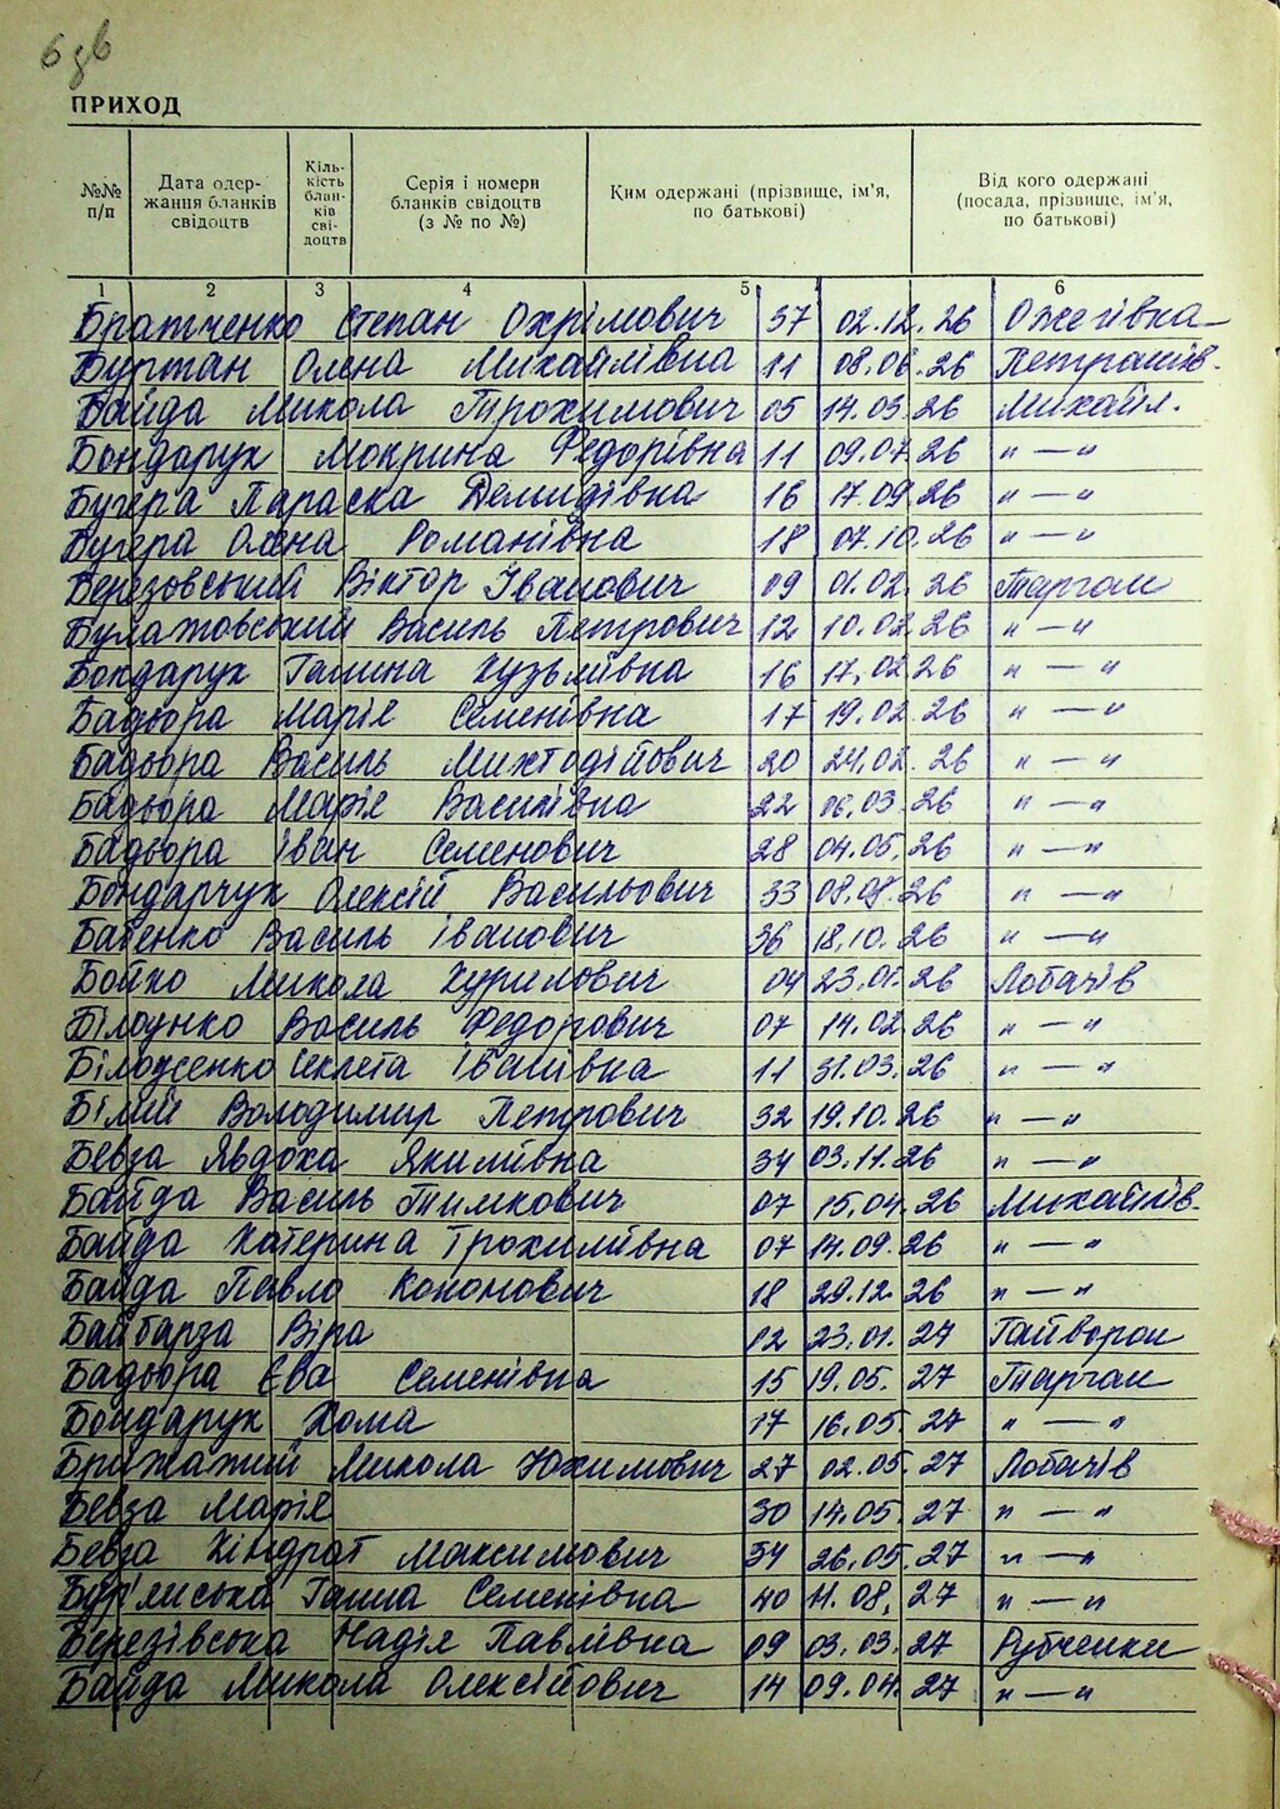 6 зв
ПРИХОД
№№ п/п
Дата одер-
жання бланків
свідоцтв
Кіль-
кість
блан-
ків
сві-
доцтв
Серія і номери
бланків свідоцтв
(з № по №)
Ким одержані (прізвище, ім'я,
по батькові)
Від кого одержані
(посада, прізвище, ім'я,
по батькові)
1 2 3 4 5 6
Братченко Степан Охрімович 37 02.12.26 Ожегівка
Буртан Олена Михайлівна 11 08.06.26 Петрашів.
Байда Микола Трохимович 05 14.03.26 Михайл.
Бондарук Мокрина Федорівна 11 09.07.26 " — "
Бугера Параска Демидівна 16 17.09.26 " — "
Бугера Олена Романівна 18 07.10.26 " — "
Березовський Віктор Іванович 09 01.02.26 Тарган
Булатовський Василь Петрович 12 10.02.26 " — "
Бондарук Галина Кузьмівна 16 17.02.26 " — "
Бадьора Марія Семенівна 17 19.02.26 " — "
Бадьора Василь Михтодійович 20 24.02.26 " — "
Бадьора Марія Василівна 22 06.03.26 " — "
Бадьора Іван Семенович 28 04.05.26 " — "
Бондарчук Олексій Васильович 33 08.08.26 " — "
Бабенко Василь Іванович 36 18.10.26 " — "
Бойко Микола Курилович 04 23.01.26 Лобачів
Василь Федорович 07 14.02.26 " — "
Секлета Іванівна 11 31.03.26 " — "
Білий Володимир Петрович 32 19.10.26 " — "
Бевза Явдоха Якимівна 34 03.11.26 " — "
Байда Василь Тимкович 07 15.04.26 Михайлів.
Байда Катерина Трохимівна 07 14.09.26 " — "
Байда Павло Кононович 18 29.12.26 " — "
Байбарза Віра 12 23.01.27 Гайворон
Бадьора Єва Семенівна 15 19.05.27 Тарган
Бондарук Хома 17 16.05.27 " — "
Брижатий Микола Юхимович 27 02.05.27 Лобачів
Бевза Марія 30 14.05.27 " — "
Бевза Кіндрат Максимович 34 26.05.27 " — "
Ганна Семенівна 40 11.08.27 " — "
Березівська Надія Павлівна 09 03.03.27 Рубченки
Байда Микола Олексійович 14 09.04.27 " — "